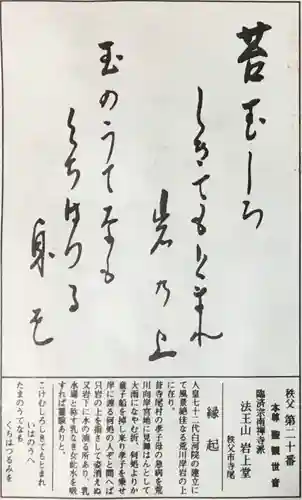 苔むしろ
しきてもとまれ
岩乃上
玉のうてなも
くちはつる
身を
秩父 第二十番
本尊 聖観世音
臨済宗南禅寺派
法王山 岩上堂
秩父市寺尾
縁起
人皇七十二代白河院の建立に
て風景絶佳なる荒川岸の上
に在り。
昔寺尾村の孝子母の急病を荒
川向岸宮地に見舞はんとして
大雨になやむ折、何処よりか
童子船を掉し来り孝子を乗せ
岸に渡る何処の人ぞと問へば
只岩の上と指さして姿消えぬ
又岩下に水の滴る所あり、乳
水場と称す乳なき女此水を吸
すれば霊験ありと。
こけむしろしきてもとまれ
いはのうへ
たまのうてなも
くちはつるみを